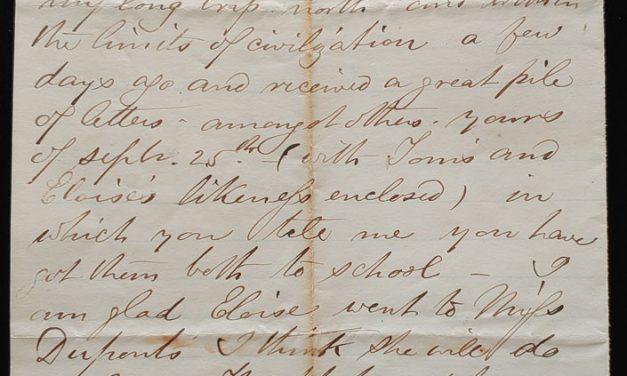 my long trip north and within
the limits of civilization a few
days ago and received a great pile
of letters - amongst others - yours
of septr. 25th (with Tom's and
Eloise's likeness enclosed) in
which you tele me you have
got them both to school - I
am glad Eloise went to Miss
Duponts' I think she will do